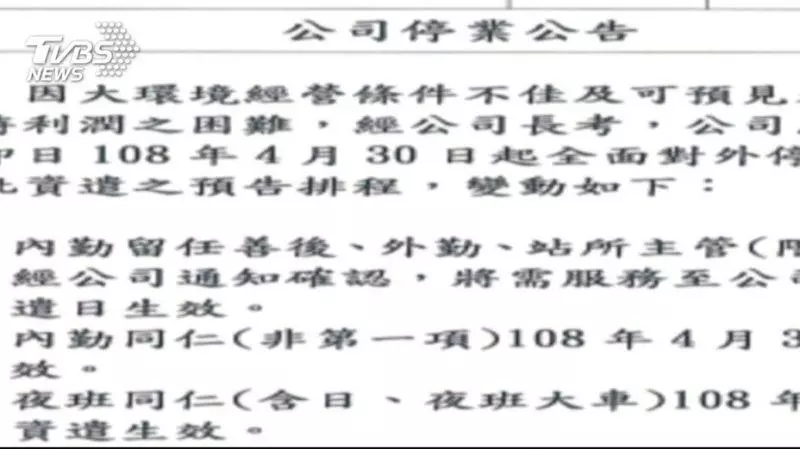 TVBS
NEWS
公司停業公告
因大環境經營條件不佳及可預見
利潤之困難，經公司長考，公司
即日108年4月30日起全面對外停
資遣之預告排程，變動如下：
內勤留任善後、外勤、站所主管(
經公司通知確認，將需服務至公司
遣日生效。
內勤同仁(非第一項)108年4月3
效。
夜班同仁(含日、夜班大車)108年
資遣生效。